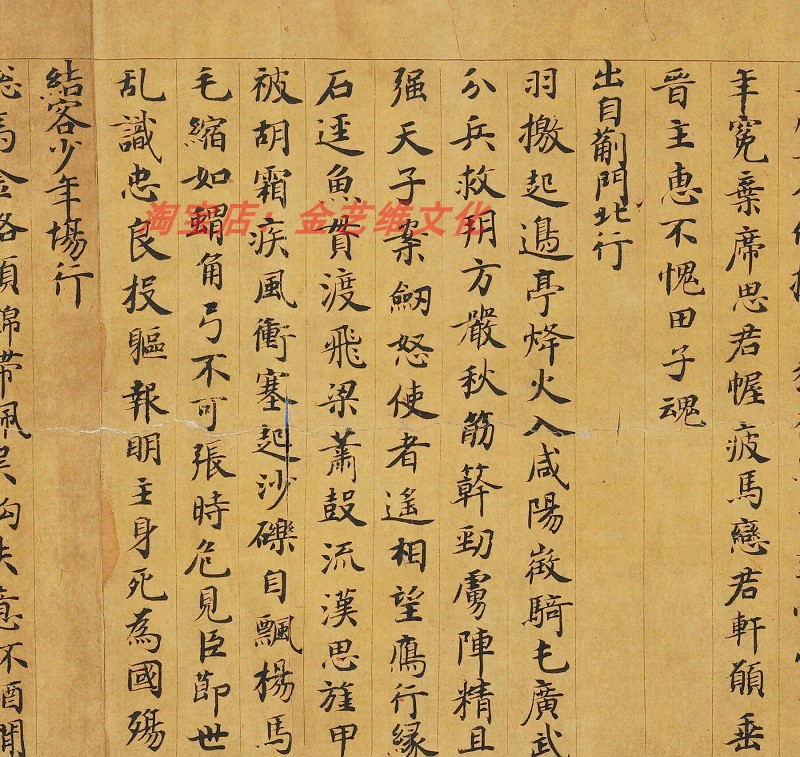 年冤棄席思君幄疲馬戀君軒願垂
晉主惠不愧田子魂
出自薊門北行
羽檄起邊亭烽火入咸陽徵騎屯廣武
分兵救朔方嚴秋筋簳勁虜陣精且
强天子案劒怒使者遙相望鴈行緣
石逕魚貫渡飛梁蕭鼓流漢思旌甲
被胡霜疾風衝塞起沙礫自飄楊馬
毛縮如蝟角弓不可張時危見臣節世
乱識忠良投軀報明主身死為國殤
結客少年場行
馬金絡頭錦帶佩吳鈎失意不酒閒
淘宝店：金艺维文化